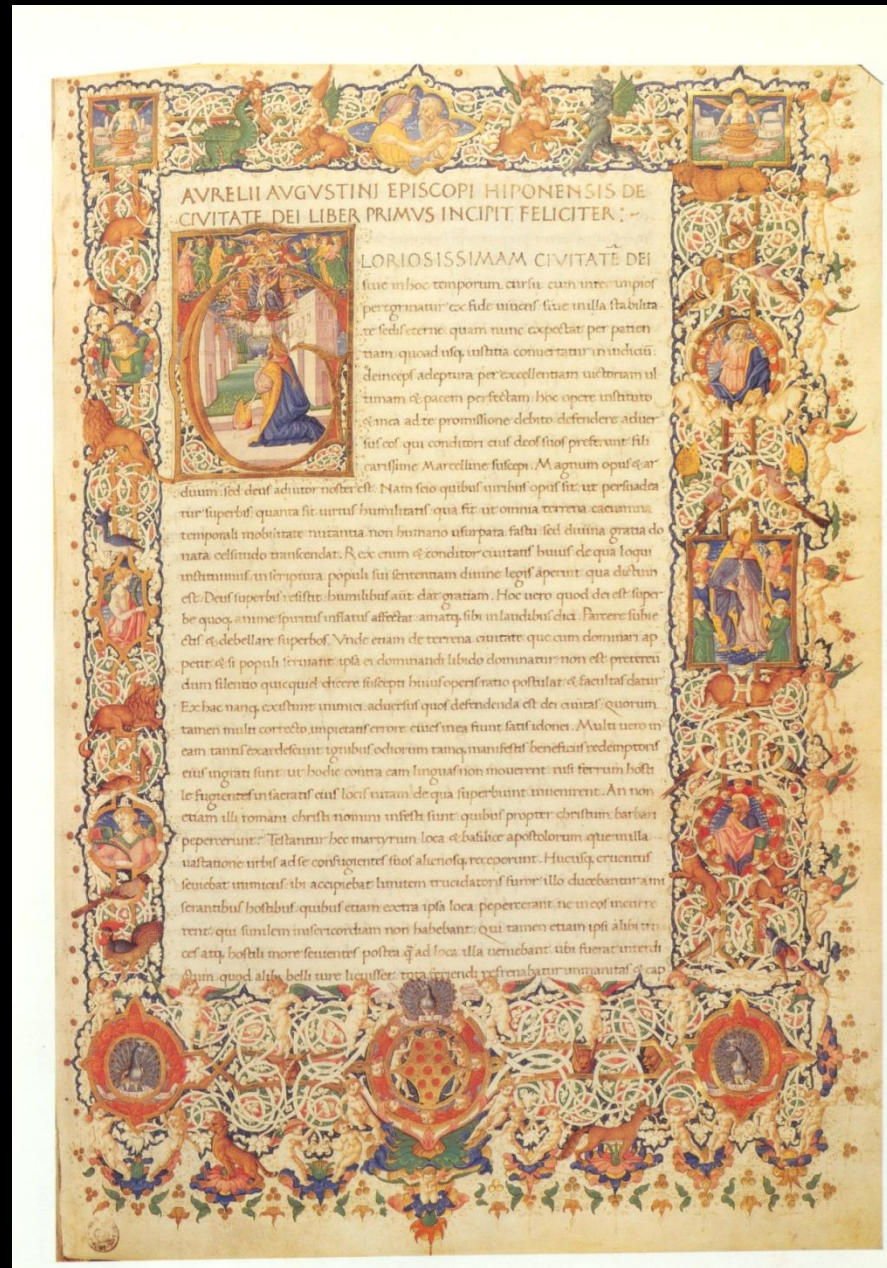 AVRELII AVGVSTINI EPISCOPI HIPONENSIS DE
CIVITATE DEI LIBER PRIMVS INCIPIT FELICITER :~
GLORIOSISSIMAM CIVITATĒ DEI
siue in hoc temporum cursu cum inter impios
peregrinatur ex fide uiuens siue in illa stabilita
te sedis eterne quam nunc expectat per patien
tiam quoad usq; iustitia conuertatur in iudiciū
deinceps adeptura per excellentiam uictoriam ul
timam & pacem perfectam hoc opere instituto
& mea ad te promissione debito defendere aduer
sus eos qui conditori eius deos suos preferunt fili
carissime Marcelline suscepi. Magnum opus & ar
duum sed deus adiutor noster est. Nam scio quibus uiribus opus sit ut persuadea
tur superbis quanta sit uirtus humilitatis qua fit ut omnia terrena cacumina
temporali mobilitate nutantia non humano usurpata fastu sed diuina gratia do
nata celsitudo transcendat. Rex enim & conditor ciuitatis huius de qua loqui
instituimus in scriptura populi sui sententiam diuine legis aperuit qua dictum
est. Deus superbis resistit humilibus aūt dat gratiam. Hoc uero quod dei est super
be quoq; anime spiritus inflatus affectat amatq; sibi in laudibus dici. Parcere subie
ctis & debellare superbos. Vnde etiam de terrena ciuitate que cum dominari ap
petit & si populi seruiant ipsa ei dominandi libido dominatur non est pretereū
dum silentio quicquid dicere suscepti huius operis ratio postulat & facultas datur
Ex hac nanq; existunt inimici aduersus quos defendenda est dei ciuitas quorum
tamen multi correcto impietatis errore ciues in ea fiunt satis idonei. Multi uero in
eam tantis exardescunt ignibus odiorum tamq; manifestis beneficiis redemptoris
eius ingrati sunt ut hodie contra eam linguas non mouerent nisi ferrum hosti
le fugientes in sacratis eius locis uitam de qua superbiunt inuenirent. An non
etiam illi romani christi nomini infesti sunt quibus propter christum barbari
pepercerunt? Testantur hec martyrum loca & basilice apostolorum que in illa
uastatione urbis ad se confugientes suos alienosq; receperunt. Hucusq; cruentus
seuiebat inimicus ibi accipiebat limitem trucidatoris furor illo ducebantur a mi
serantibus hostibus quibus etiam extra ipsa loca pepercerant ne in eos incurre
rent qui similem misericordiam non habebant. Qui tamen etiam ipsi alibi tru
ces atq; hostili more seuientes postea q̄ ad loca illa ueniebant ubi fuerat interdi
ctum quod alibi belli iure licuisset tota feriendi refrenabatur immanitas & cap